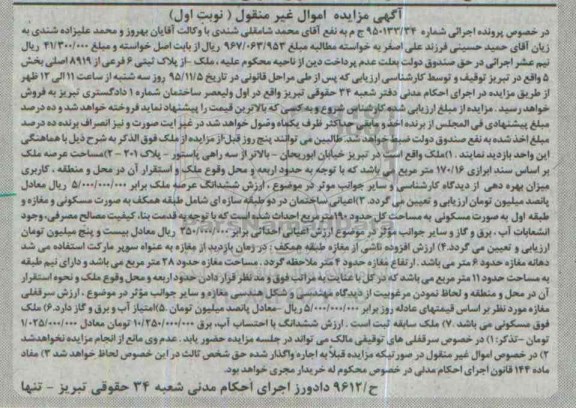 آگهی مزایده اموال غیر منقول ( نوبت اول)
در خصوص پرونده اجرائی شماره ۹۵۰۱۳۳/۳۴ ج م به نفع آقای محمد شاملقلی شندی با وکالت آقایان بهروز و محمد علیزاده شندی به
زیان آقای حمید حسینی فرزند علی اصغر به خواسته مطالبه مبلغ ۹۶۷/۰۶۳/۹۵۳ ریال از بابت اصل خواسته و مبلغ ۴۱/۳۰۰/۰۰۰ ریال
نیم عشر اجرائی در حق صندوق دولت بعلت عدم پرداخت دین از ناحیه محکوم علیه ، ملک -از پلاک ثبتی ۶ فرعی از ۸۹۱۹ اصلی بخش
۵ واقع در تبریز توقیف و توسط کارشناسی ارزیابی که پس از طی مراحل قانونی در تاریخ ۹۵/۱۱/۵ روز سه شنبه از ساعت ۱۱ الی ۱۲ ظهر
از طریق مزایده در اجرای احکام مدنی دفتر شعبه ۳۴ حقوقی تبریز واقع در اول ولیعصر ساختمان شماره ۱ دادگستری تبریز به فروش
خواهد رسید . مزایده از مبلغ ارزیابی شده کارشناس شروع و به کسی که بالاترین قیمت را پیشنهاد نماید فروخته خواهد شد و ده درصد
مبلغ پیشنهادی فی المجلس از برنده اخذ و مابقی حداکثر ظرف یکماه وصول خواهد شد در غیر این صورت و نیز انصراف برنده ده درصد
مبلغ اخذ شده به نفع صندوق دولت ضبط خواهد شد. طالبین می توانند پنج روز قبل از مزایده از ملک فوق الذکر به شرح ذیل با هماهنگی
این واحد بازدید نمایند . ۱)ملک واقع است در تبریز خیابان ابوریحان - بالاتر از سه راهی پاستور - پلاک ۲۰۱ - ۲)مساحت عرصه ملک
بر اساس سند ابرازی ۱۷۰/۱۶ متر مربع می باشد که با توجه به حدود اربعه و محل وقوع ملک و استقرار آن در محل و منطقه ، کاربری
میزان بهره دهی از دیدگاه کارشناسی و سایر جوانب موثر در موضوع ، ارزش ششدانگ عرصه ملک برابر ۵/۰۰۰/۰۰۰/۰۰۰ ریال معادل
پانصد میلیون تومان ارزیابی و تعیین می گردد. ۳)اعیانی ساختمان در دو طبقه سازه ای شامل طبقه همکف به صورت مسکونی و مغازه و
طبقه اول به صورت مسکونی به مساحت کل حدود ۱۹۰ متر مربع احداث شده است که با توجه به قدمت بنا، کیفیت مصالح مصرفی، وجود
انشعابات آب ، برق و گاز و سایر جوانب موثر در موضوع ارزش اعیانی احداثی برابر ۲۵۰/۰۰۰/۰۰۰ ریال معادل بیست و پنج میلیون تومان
ارزیابی و تعیین می گردد.۴) ارزش افزوده ناشی از مغازه طبقه همکف : در زمان بازدید از مغازه به عنوان سوپر مارکت استفاده می شد
دهانه مغازه حدود ۶ متر می باشد . ارتفاع مغازه حدود ۴ متر ملاحظه گردد . مساحت مغازه حدود ۲۸ متر مربع می باشد و دارای نیم طبقه
به مساحت حدود ۱۱ متر مربع می باشد که در کل با عنایت به مراتب فوق و مد نظر قرار دادن حدود اربعه و محل وقوع ملک و نحوه استقرار
آن در محل و منطقه و لحاظ نمودن مرغوبیت از دیدگاه مهندسی و شکل هندسی مغازه و سایر جوانب موثر در موضوع ، ارزش سرقفلی
مغازه مورد نظر بر اساس قیمتهای عادله روز برابر ۵/۰۰۰/۰۰۰/۰۰۰ ریال -معادل پانصد میلیون تومان .۵)امتیاز آب و برق و گاز دارد. ۶) ملک
فوق مسکونی می باشد .۷) ملک سابقه ثبت است . ارزش ششدانگ با احتساب آب، برق ۱۰/۲۵۰/۰۰۰/۰۰۰ تومان معادل ۱/۰۲۵/۰۰۰/۰۰۰
تومان -تذکر: ۱) در خصوص سرقفلی های توقیفی مالک می تواند در جلسه مزایده حضور یابد . عدم وی مانع از انجام مزایده نخواهدشد
۲) در خصوص اموال غیر منقول در صورتیکه مزایده قبلا به اجاره واگذار شده حق شخص ثالث در این خصوص لحاظ خواهد شد ۳) مفاد
ماده ۱۴۴ قانون اجرای احکام مدنی در خصوص محکوم له خریدار مجری خواهد بود.
ح/۹۶۱۲ دادورز اجرای احکام مدنی شعبه ۳۴ حقوقی تبریز - تنها